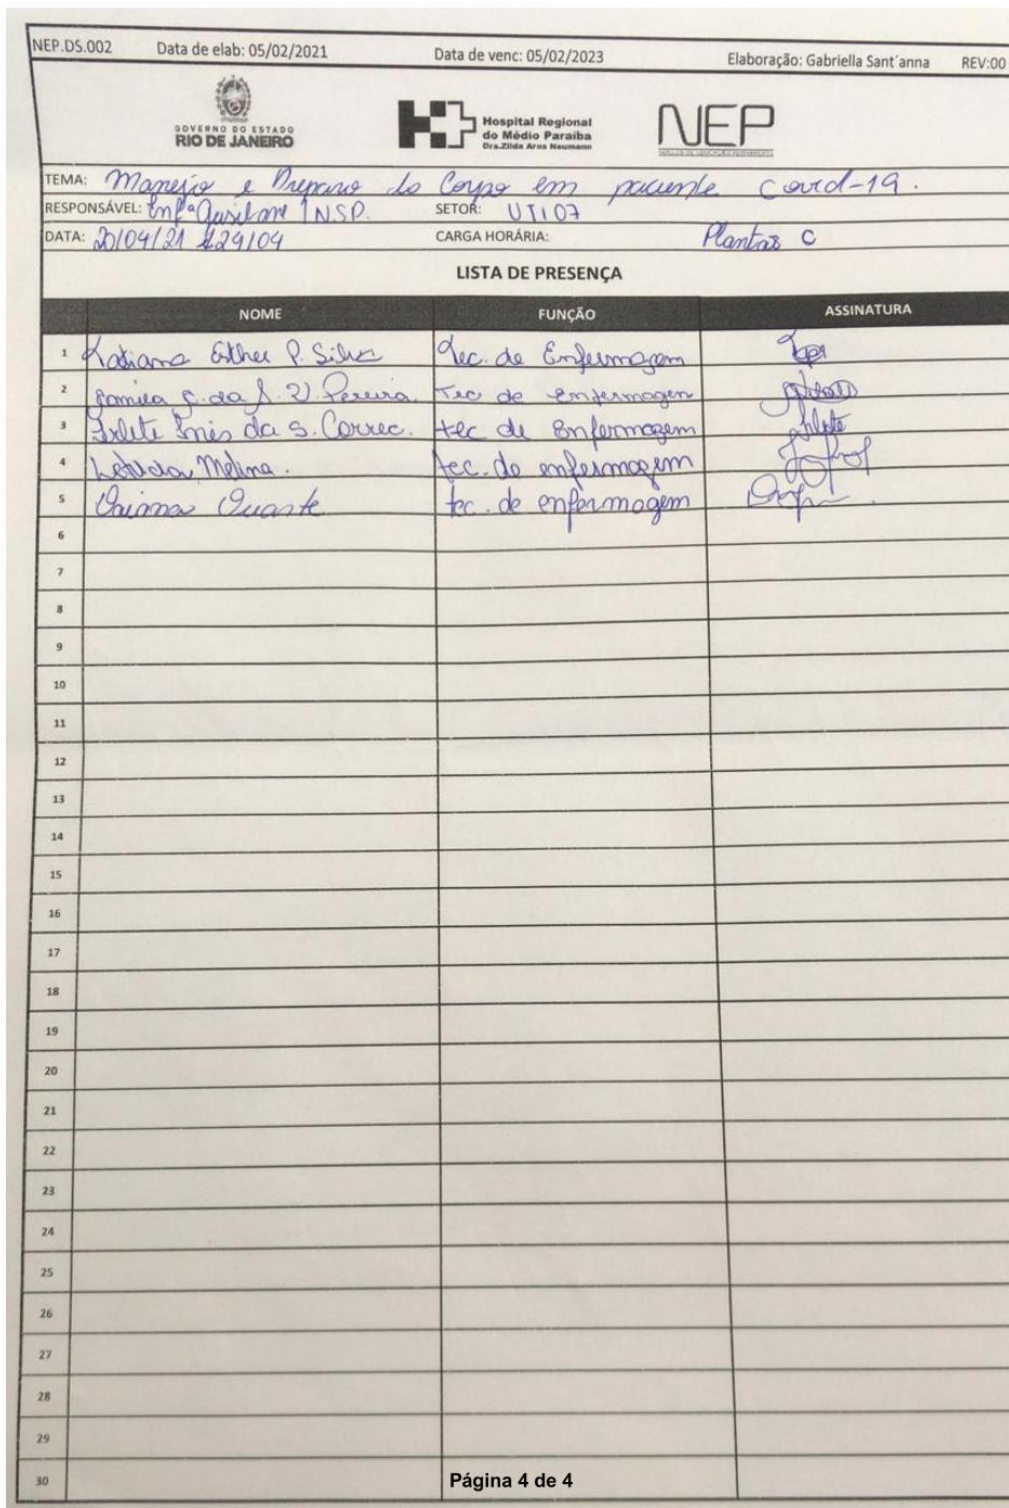 NEP.DS.002 Data de elab: 05/02/2021 Data de venc: 05/02/2023 Elaboração: Gabriella Sant´anna REV:00
GOVERNO DO ESTADO
RIO DE JANEIRO
Hospital Regional
do Médio Paraíba
Dra.Zilda Arns Neumann
NEP
NÚCLEO DE EDUCAÇÃO PERMANENTE
TEMA: Manejo e Preparo do Corpo em paciente covid-19.
RESPONSÁVEL: Enfª NSP. SETOR: UTI 07
DATA: 20/04/21 29/04 CARGA HORÁRIA: Plantão C
LISTA DE PRESENÇA
NOME FUNÇÃO ASSINATURA
1 Esther P. Silva Tec. de Enfermagem
2 da S. V. Pereira. Tec de enfermagem
3 Inês da S. Correc. tec de enfermagem
4 Melina. tec. de enfermagem
5 Duarte tec. de enfermagem
6
7
8
9
10
11
12
13
14
15
16
17
18
19
20
21
22
23
24
25
26
27
28
29
30 Página 4 de 4